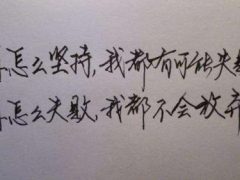 怎么坚持,我都有可能失
怎么失败,我都不会放弃